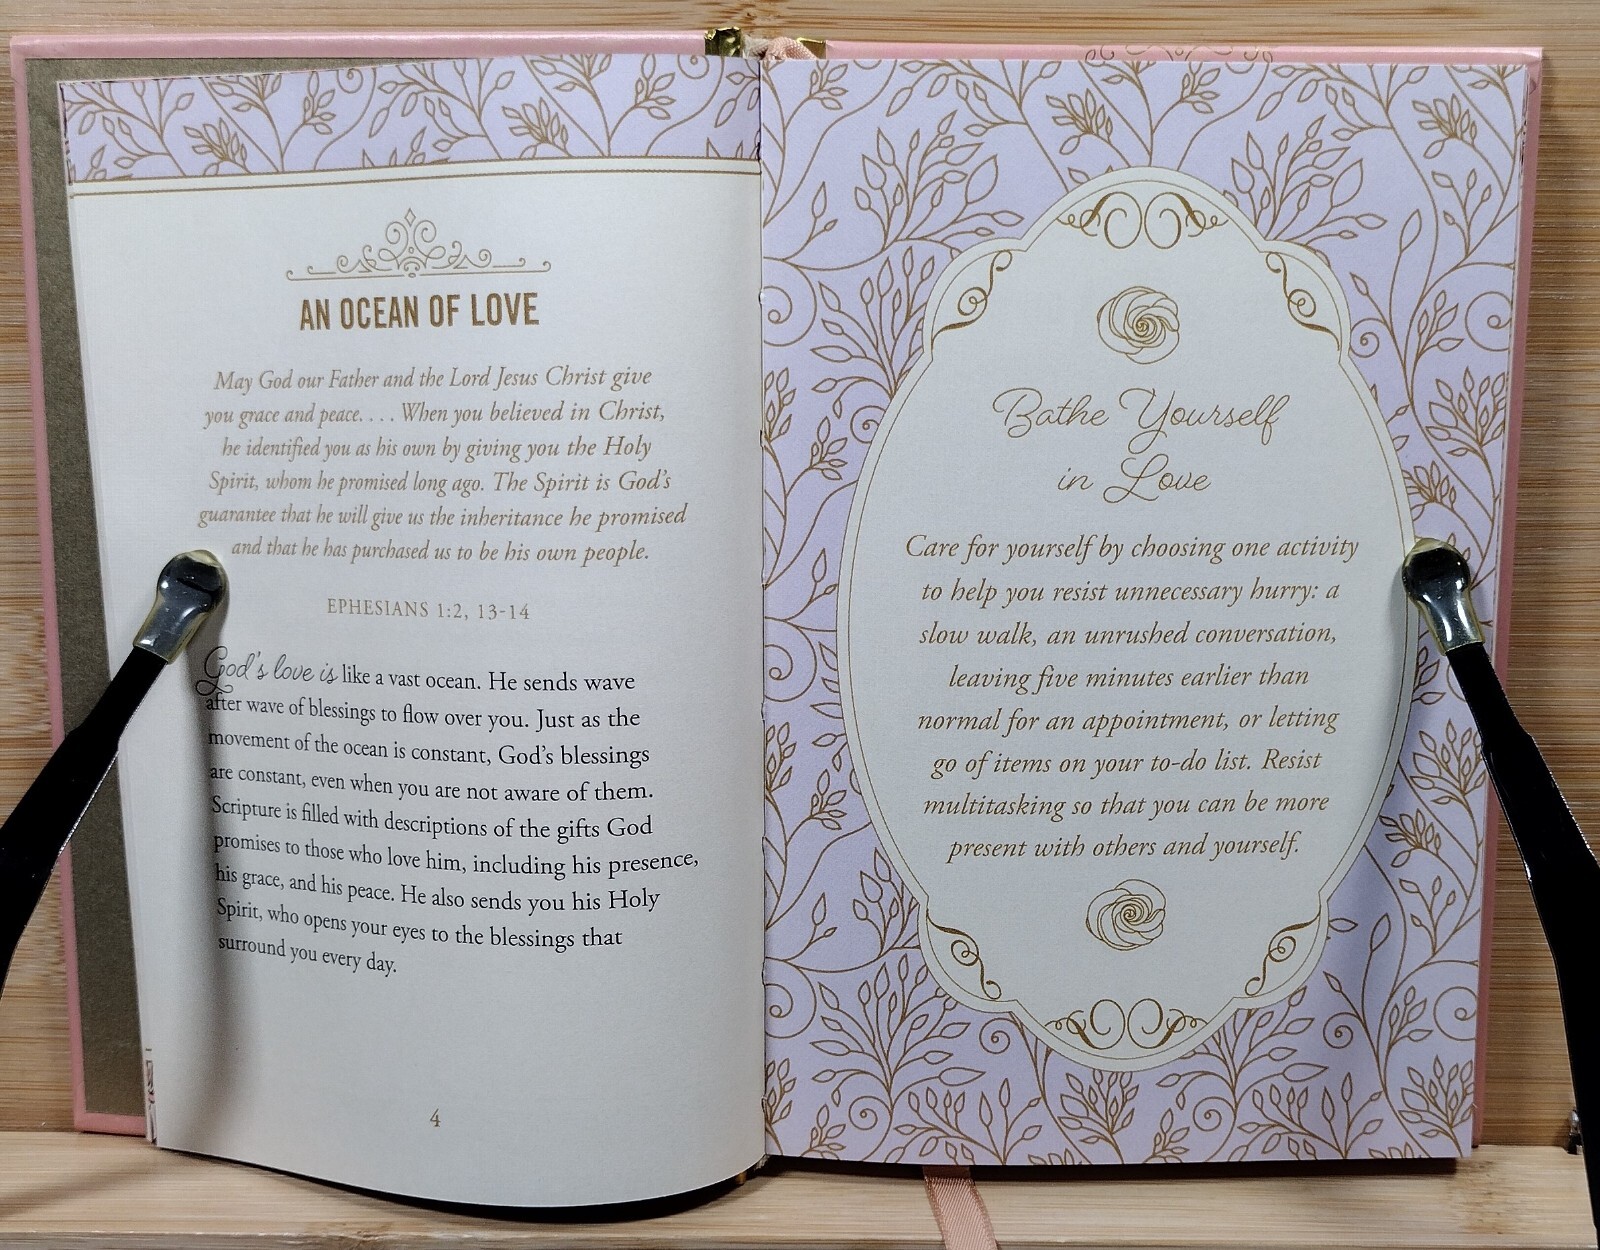 AN OCEAN OF LOVE
May God our Father and the Lord Jesus Christ give
you grace and peace. . . . When you believed in Christ,
he identified you as his own by giving you the Holy
Spirit, whom he promised long ago. The Spirit is God's
guarantee that he will give us the inheritance he promised
and that he has purchased us to be his own people.
EPHESIANS 1:2, 13-14
God's love is like a vast ocean. He sends wave
after wave of blessings to flow over you. Just as the
movement of the ocean is constant, God's blessings
are constant, even when you are not aware of them.
Scripture is filled with descriptions of the gifts God
promises to those who love him, including his presence,
his grace, and his peace. He also sends you his Holy
Spirit, who opens your eyes to the blessings that
surround you every day.
4
Bathe Yourself
in Love
Care for yourself by choosing one activity
to help you resist unnecessary hurry: a
slow walk, an unrushed conversation,
leaving five minutes earlier than
normal for an appointment, or letting
go of items on your to-do list. Resist
multitasking so that you can be more
present with others and yourself.